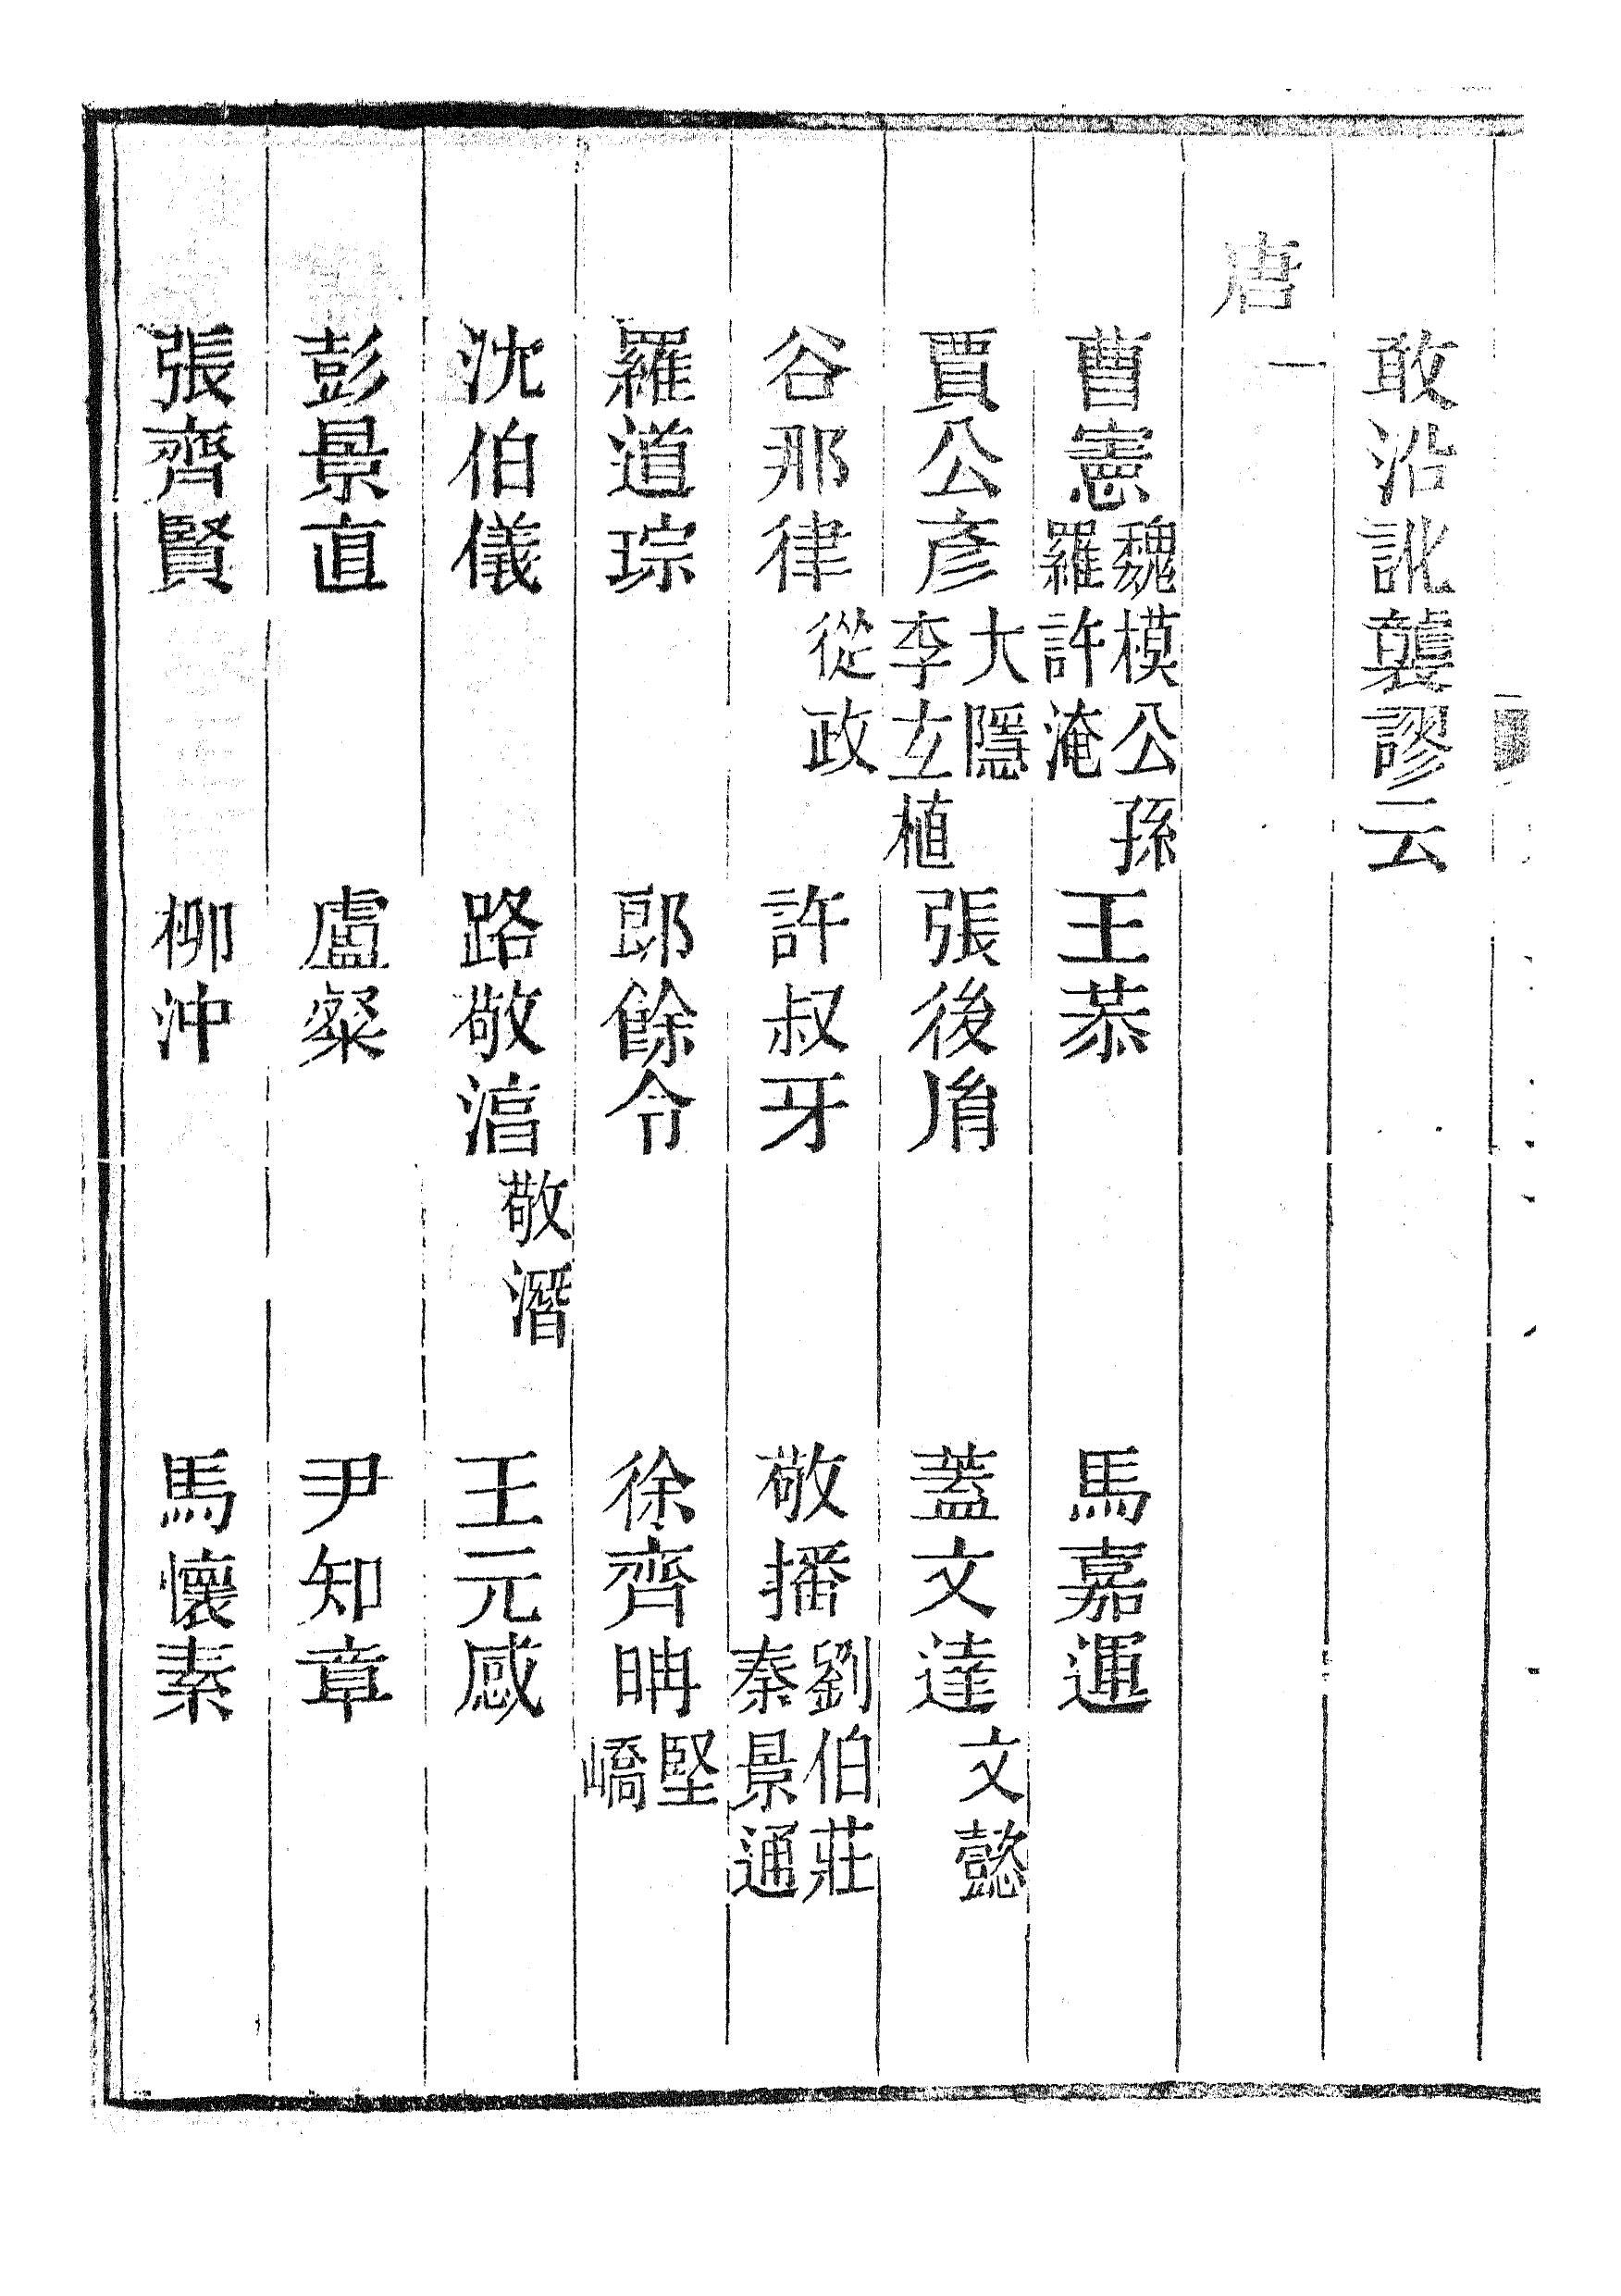 敢沿訛襲謬云
唐一
曹憲 魏模公孫羅許淹 王恭 馬嘉運
賈公彥 大隱李玄植 張後胤 蓋文達 文懿
谷那律 從政 許叔牙 敬播 劉伯莊秦景通
羅道琮 郎餘令 徐齊聃 堅嶠
沈伯儀 路敬湻 敬潛 王元感
彭景直 盧粲 尹知章
張齊賢 柳沖 馬懷素